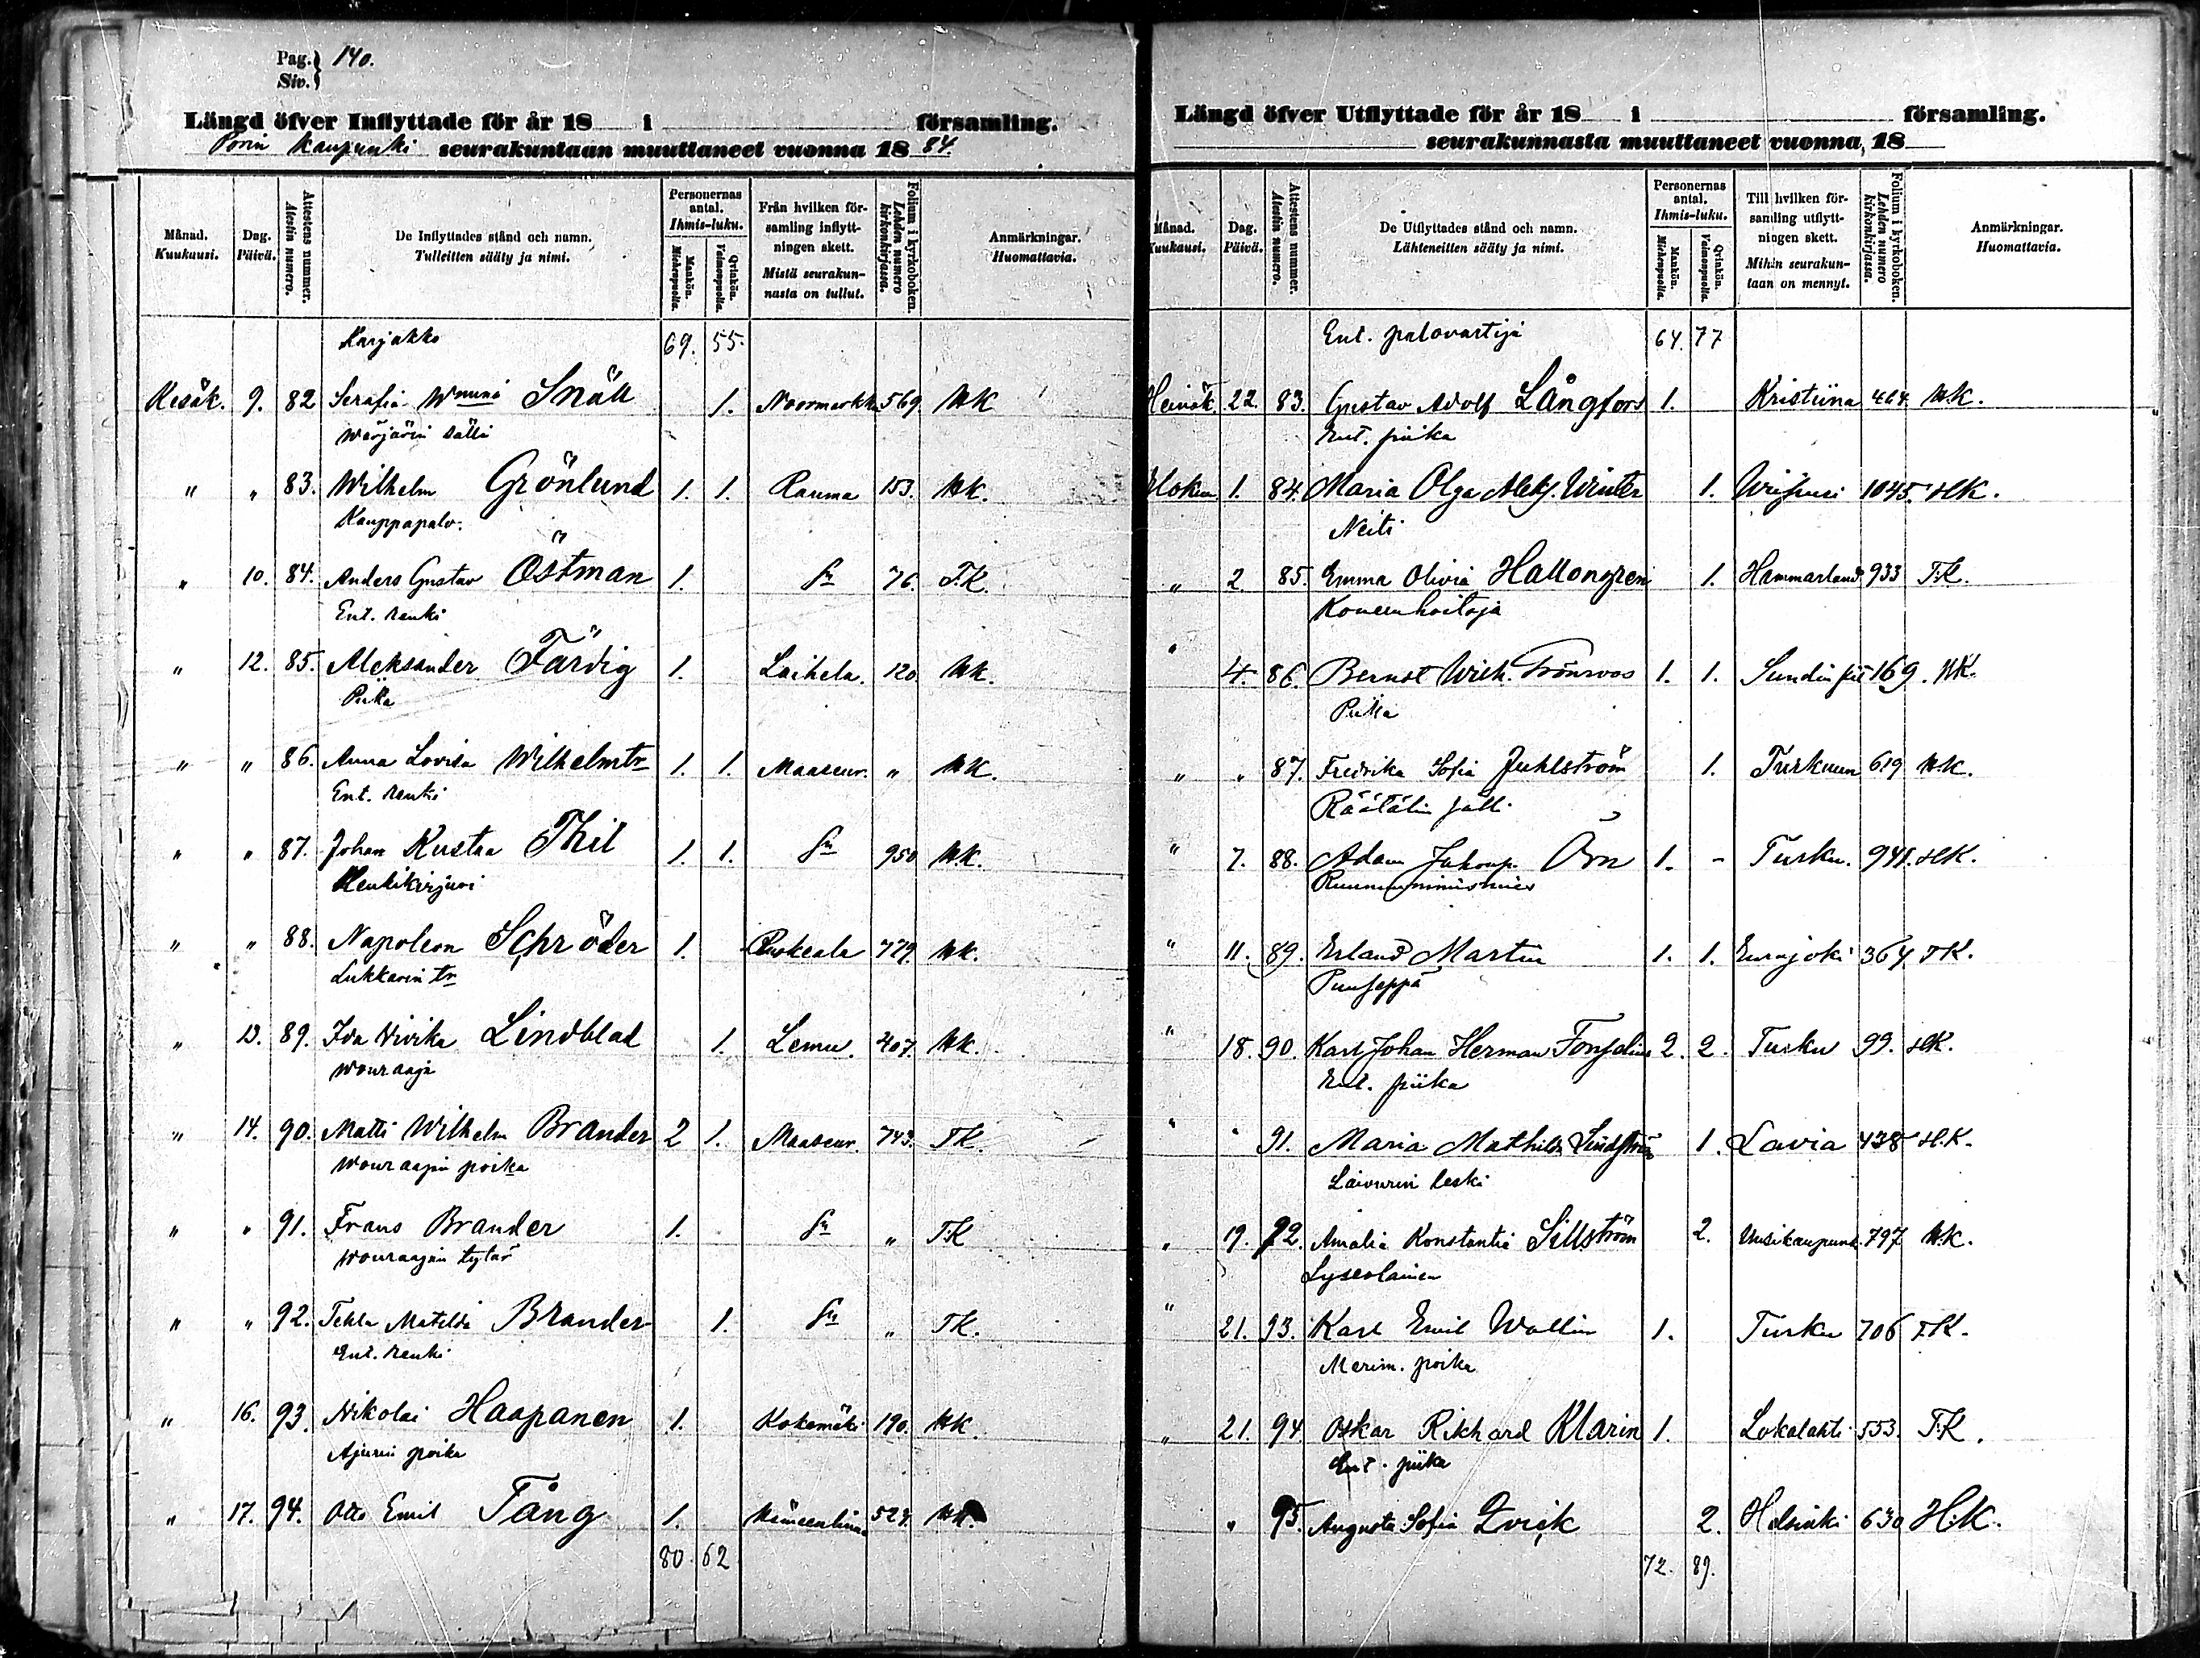 Pag. 140.
Siv.
Längd öfver Inflyttade för år 18 i församling.
Porin kaupunki seurakuntaan muuttaneet vuonna 1884.
Månad. Kuukausi.
Dag. Päivä.
Attestens nummer. Atestin numero.
De Inflyttades stånd och namn. Tulleitten sääty ja nimi.
Personernas antal. Ihmis-luku.
Mankön. Miehenpuolia.
Qvinkön. Vaimonpuolia.
Från hvilken församling inflyttningen skett. Mistä seurakunnasta on tullut.
Folium i kyrkoboken. Lehden numero kirkonkirjassa.
Anmärkningar. Huomattavia.
Karjakko 69. 55.
Kesäk. 9. 82 Serafia Snäll 1. Noormarkk. 569 HK
Wärjärin sälli
" " 83. Wilhelm Grönlund 1. 1. Rauma 153. HK.
Kauppapalv.
" 10. 84. Anders Gustav Östman 1. Sn 76. T.K.
Ent. renki
" 12. 85. Aleksander Färdig 1. Laihela. 120. HK.
Piika
" " 86. Anna Lovisa Wilhelmtr 1. 1. Maaseur. " HK.
Ent. renki
" " 87. Johan Kustaa Thil 1. 1. Sn 950 HK.
Henkikirjuri
" " 88. Napoleon Schröder 1. Ruskeala 779. HK.
Lukkarin tr
" 13. 89. Ida Vivika Lindblad 1. Lemu. 407. HK.
Wouraaja
" 14. 90. Matti Wilhelm Brander 2 1. Maaseur. 743. TK.
Wouraajan poika
" " 91. Frans Brander 1. Sn " T.K
Wouraajan tytär
" " 92. Tekla Matilda Brander 1. Sn " TK.
Ent. renki
" 16. 93. Nikolai Haapanen 1. Kokemäki 190. HK.
Ajurin poika
" 17. 94. Otto Emil Tång 1. Hämeenlinna 527. HK.
80. 62
Längd öfver Utflyttade för år 18 i församling.
seurakunnasta muuttaneet vuonna, 18
Månad. Kuukausi.
Dag. Päivä.
Attestens nummer. Atestin numero.
De Utflyttades stånd och namn. Lähteneitten sääty ja nimi.
Personernas antal. Ihmis-luku.
Mankön. Miehenpuolia.
Qvinkön. Vaimonpuolia.
Till hvilken församling utflyttningen skett. Mihin seurakuntaan on mennyt.
Folium i kyrkoboken. Lehden numero kirkonkirjassa.
Anmärkningar. Huomattavia.
Ent. palovartija 64. 77
Heinäk 22. 83. Gustav Adolf Långfors 1. Kristiina 464. H.K.
Ent. piika
Elokuu 1. 84. Maria Olga Aleks. Winter 1. Wiipuri 1045. HK.
Neiti
" 2. 85. Emma Olivia Hallongren 1. Hammarland 933 T.K.
Koneenhoitaja
" 4. 86. Bernst Wilh. Trönroos 1. 1. 169. HK.
Piika
" " 87. Fredrika Sofia Juhlström 1. Turkuun 619 H.K.
Räätälin sälli
" 7. 88. Adam Örn 1. - Turku. 941. HK.
" 11. 89. Erland Martin 1. 1. Eurajoki 364. TK.
Puuseppä
" 18. 90. Karl Johan Herman Fonselius 2. 2. Turku 99. HK.
Ent. piika
" " 91. Maria Mathilda Lindström 1. Lavia 438 H.K.
Laivurin leski
" 19. 92. Amalia Konstantia Sillström 2. Uusikaupunk. 797 H.K.
Lyseolainen
" 21. 93. Karl Emil Wallin 1. Turku 706 T.K.
Merim. poika
" 21. 94. Oskar Rikhard Klarin 1. Lokalahti 553. T.K.
Ent. piika
" 95. Augusta Sofia Qvick 2. Helsinki 630 H.K.
72. 89.